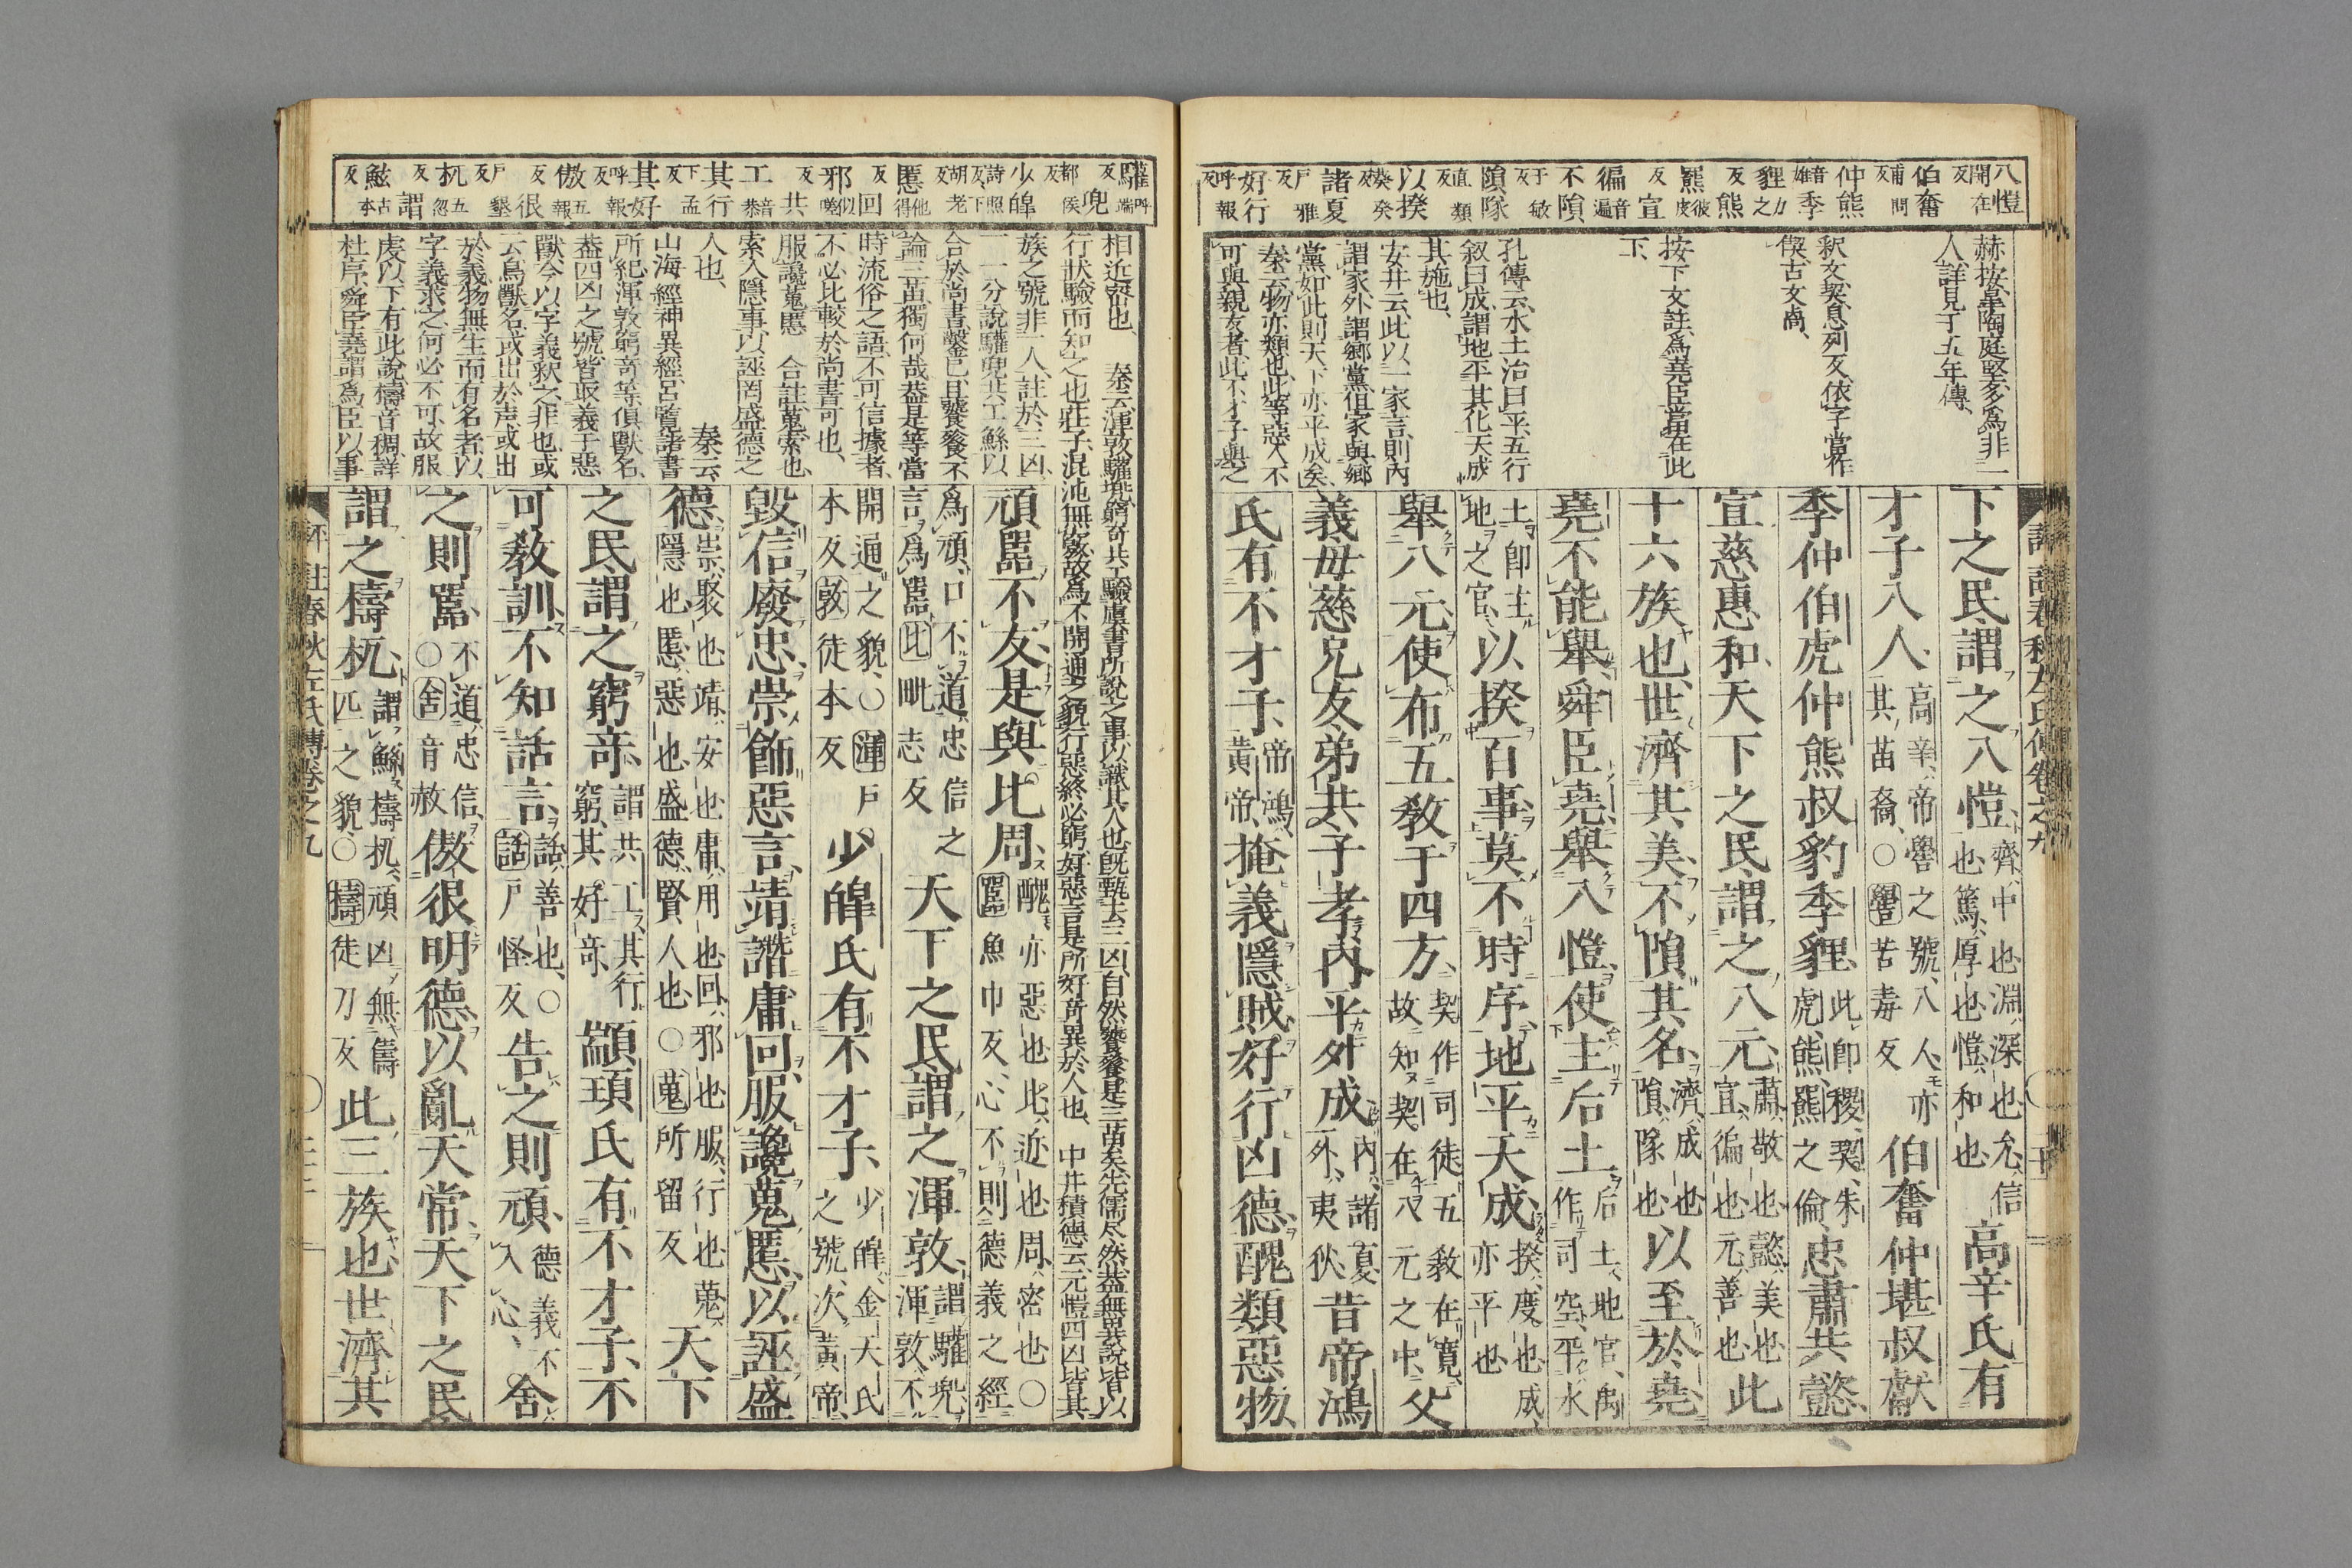 八愷
開在
反
伯奮
甫問
反
仲熊
音雄
季
貍
力之
反
熊
羆
彼皮
反
宜
徧
音遍
不隕
于敏
反
隕隊
直類
反
以揆
葵癸
反
諸夏
戸雅
反
好行
呼報
反
赫按皐陶庭堅多爲非一
人詳見于五年傳
釈文契息列反依字當作
偰古文卨
按下文註爲堯臣當在此
下
孔傳云水土治曰平五行
叙曰成謂地平其化天成
其施也
安井云此以一家言則内
謂家外謂鄉黨但家與鄉
黨如此則天下亦平成矣
秦云物亦類也此等惡人不
可與親友者此不才子與之
下之民謂之八愷
齊中也淵深也允信
也篤厚也愷和也
高辛氏有
才子八人
高辛帝嚳之號八人亦
其苗裔○嚳苦毒反
伯奮仲堪叔獻
季仲伯虎仲熊叔豹季貍
此即稷契朱
虎熊羆之倫
忠肅共懿
宣慈惠和天下之民謂之八元
肅敬也懿美也
宣徧也元善也
此
十六族也世濟其美不隕其名
濟成也
隕隊也
以至於堯
堯不能舉舜臣堯舉八愷使主后土
后土地官禹
作司空平水
土即主
地之官
以揆百事莫不時序地平天成
揆度也成
亦平也
舉八元使布五敎于四方
契作司徒五敎在寛
故知契在八元之中
父
義母慈兄友弟共子孝内平外成
内諸夏
外夷狄
昔帝鴻
氏有不才子
帝鴻
黃帝
掩義隱賊好行凶德醜類惡物
驩
呼端
反
兜
都侯
反
少皥
詩照反下
胡老反
慝
他得
反
回邪
似嗟
反
共工
音恭
其行
下孟
反
其好
呼報
反
傲
五報
反
很
戸墾
反
杌
五忽
反
謂鮌
古本
反
相近密也　秦云渾敦驩兜窮奇共工驗虞書所說之事以識其人也既甄去三凶自然饕餮是三苗矣先儒尽然蓋無異說皆以
行狀驗而知之也莊子混沌無竅故爲不開通之貌行惡終必窮好惡言是所好奇異於人也　中井積德云元愷四凶皆其
族之號非一人註於三凶
一一分說驩兜共工鯀以
合於尚書鑿已且饕餮不
論三苗獨何哉蓋是等當
時流俗之語不可信據者
不必比較於尚書可也
服讒蒐慝　合註蒐索也
索入隱事以誣罔盛德之
人也　　　　　秦云
山海經神異經呂覧諸書
所紀渾敦窮奇等俱獸名
蓋四凶之號皆取義于惡
獸今以字義釈之非也或
云鳥獸名或出於声或出
於義物無生而有名者以
字義求之何必不可故服
虔以下有此說檮音稠詳
杜序舜臣堯謂爲臣以事
頑嚚不友是與比周
醜亦惡也比近也周密也○
嚚魚巾反心不則德義之經
爲頑口不道忠信之
言爲嚚比毗志反
天下之民謂之渾敦
謂驩兜
渾敦不
開通之貌○渾戸
本反敦徒本反
少皥氏有不才子
少皥金天氏
之號次黃帝
毀信廢忠崇飾惡言靖譖庸回服讒蒐慝以誣盛
德
崇聚也靖安也庸用也回邪也服行也蒐
隱也慝惡也盛德賢人也○蒐所留反
天下
之民謂之窮奇
謂共工其行
窮其好奇
顓頊氏有不才子不
可敎訓不知話言
話善也○
話戸怪反
告之則頑
德義不
入心
舍
之則嚚
不道忠信
○舍音赦
傲很明德以亂天常天下之民
謂之檮杌
謂鯀檮杌頑凶無儔
匹之貌○檮徒刀反
此三族也世濟其
評註春秋左氏傳卷之九